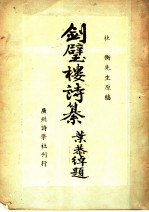 杜衡先生原稿
劍璧樓詩纂
葉恭綽題
廣州詩學社刊行